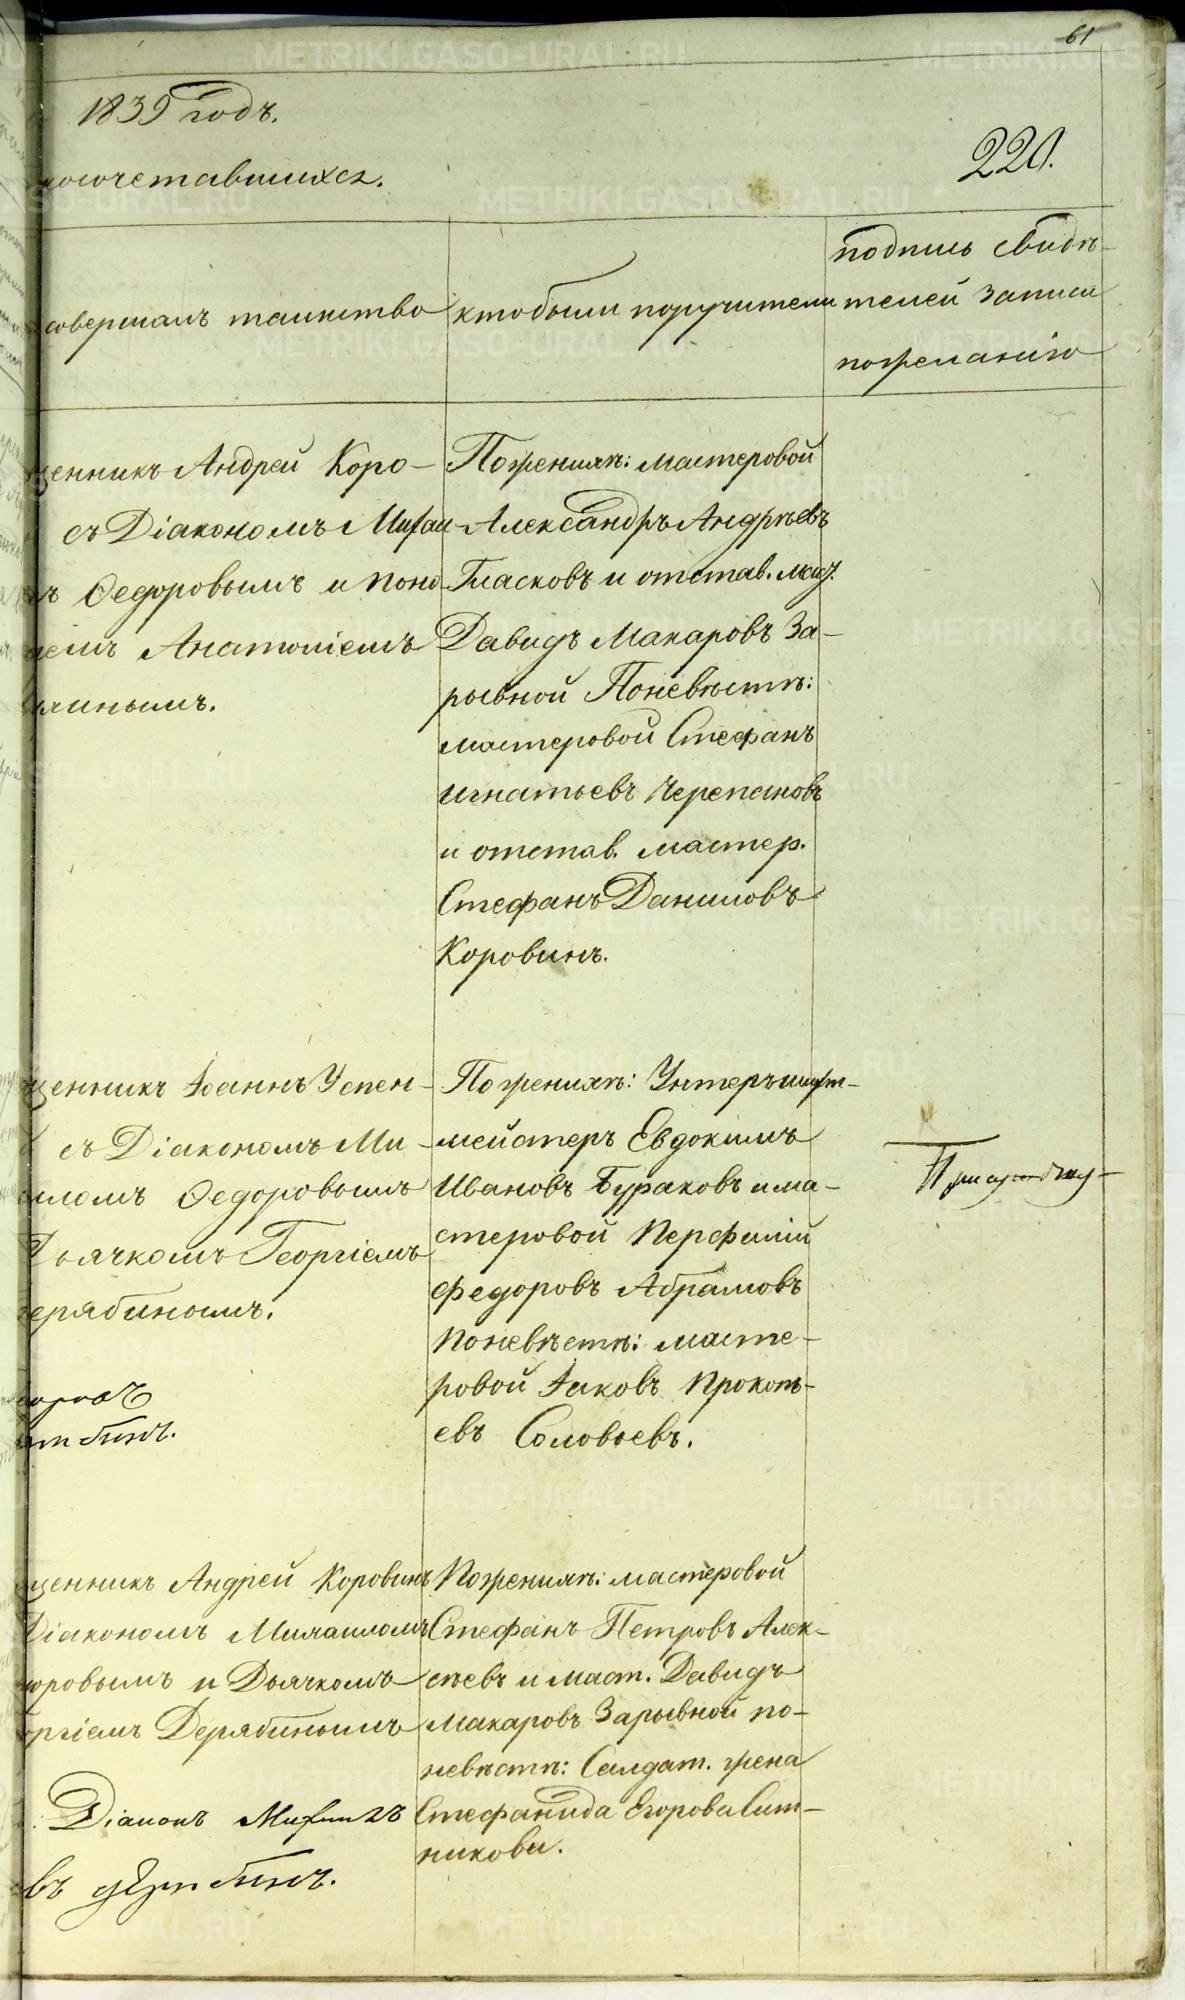 61
1839 годъ.
220.
косочетавшихся.
совершалъ таинство
кто были поручители
подпись свидѣ-
телей записи
по желанію
щенникъ Андрей Коро-
съ Діакономъ Михаи-
ъ Ѳедоровымъ и Поно-
емъ Анатоліемъ
инымъ.
По женихѣ: мастеровой
Александръ Андрѣевъ
Гласковъ и отстав. маст.
Давидъ Макаровъ За-
рывной По невѣстѣ:
мастеровой Стефанъ
Игнатьевъ Черепановъ
и отстав. мастер.
Стефанъ Даниловъ
Коровинъ.
щенникъ Іоаннъ Успен-
съ Діакономъ Ми-
иломъ Ѳедоровымъ
Дьячкомъ Георгіемъ
ерябинымъ.
По женихѣ: Унтеръ шихт-
мейстеръ Евдокимъ
Ивановъ Бураковъ и ма-
стеровой Перфилій
Федоровъ Абрамовъ
По невѣстѣ: масте-
ровой Іаковъ Прокопь-
евъ Соловьевъ.
щенникъ Андрей Коровинъ
Діакономъ Михаиломъ
оровымъ и Дьячкомъ
оргіемъ Дерябинымъ
Діаконъ Михаилъ
въ Дерябинъ.
По женихѣ: мастеровой
Стефанъ Петровъ Алек-
сѣевъ и маст. Давидъ
Макаровъ Зарывной по
невѣстѣ: Салдат. жена
Стефанида Егорова Сит-
никова.
METRIKI.GASO-URAL.RU